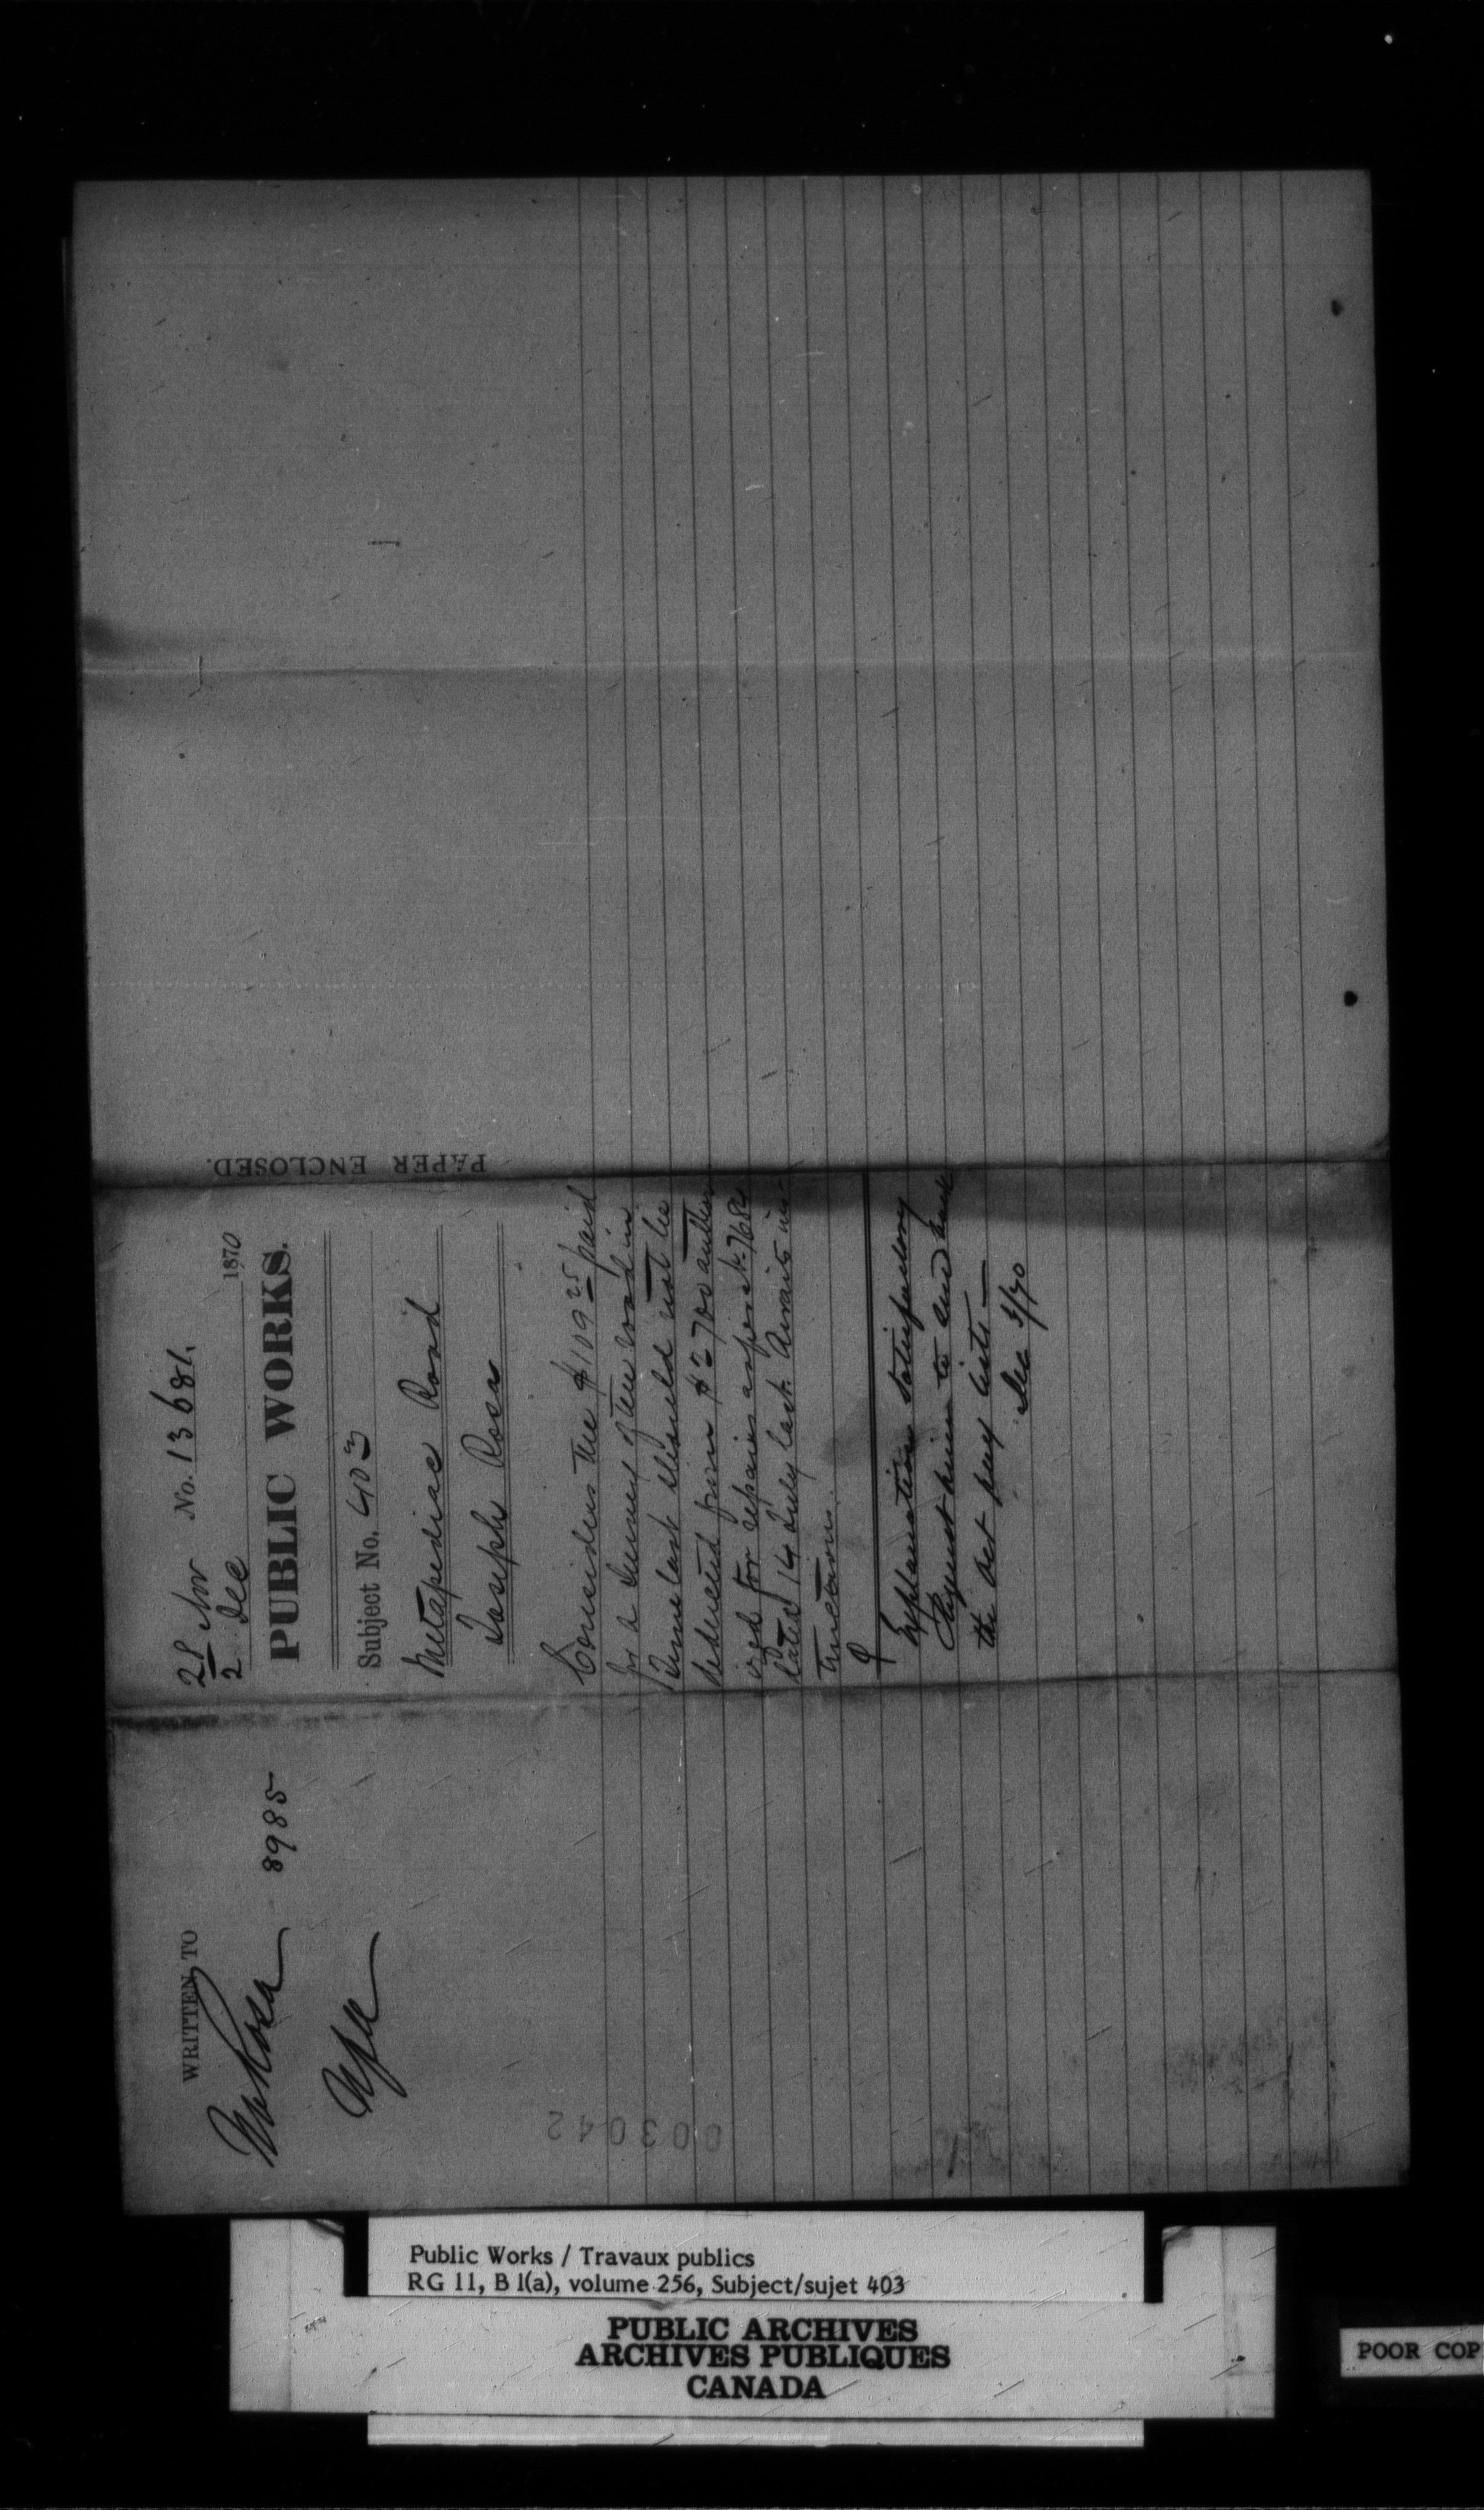 28 Nov No. 13681.
2 Dec 1870
PUBLIC WORKS.
Subject No. 403
Metapediac Road
Joseph Rosa
Considers the $109 25 paid
for a survey of the road in
June last should not be
deducted from $2700 author
ized for repairs as per 7684
dated 14 July last. Awaits ins
tructions.
Explanation satisfactory
Request him to send back
the Oct pay lists —
Dec 3/70
PAPER ENCLOSED.
WRITTEN TO
Mr Rosa 8985
003042
Public Works / Travaux publics
RG 11, B 1(a), volume 256, Subject/sujet 403
PUBLIC ARCHIVES
ARCHIVES PUBLIQUES
CANADA
POOR COP